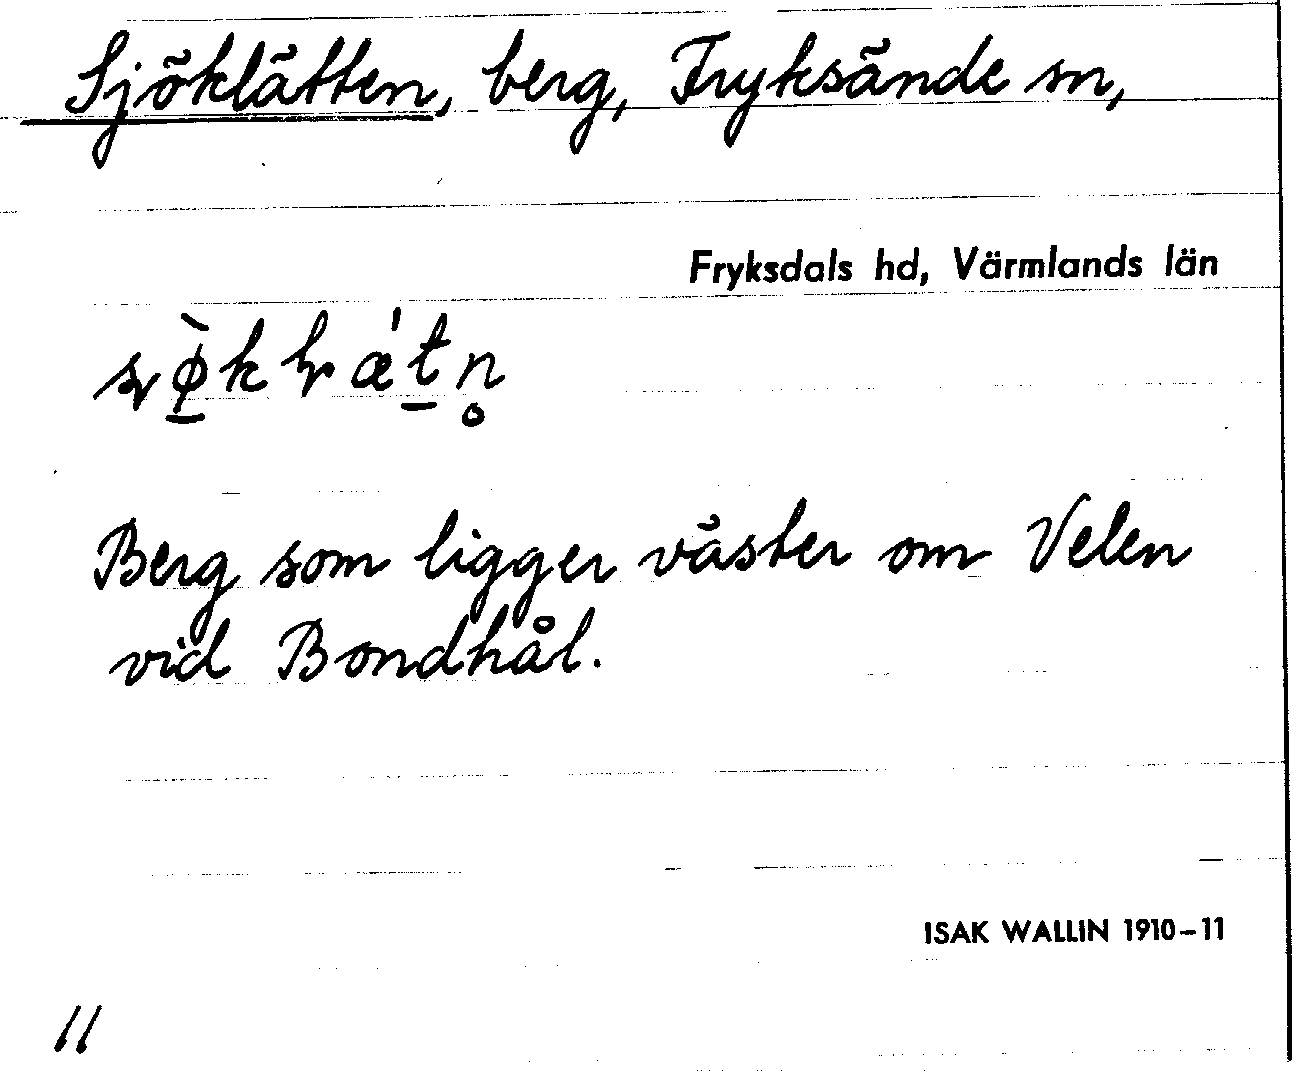 Sjöklätten, berg, Fryksände sn,
Fryksdals hd, Värmlands län
Berg som ligger väster om Velen
vid Bondhål.
ISAK WALLIN 1910–11
11